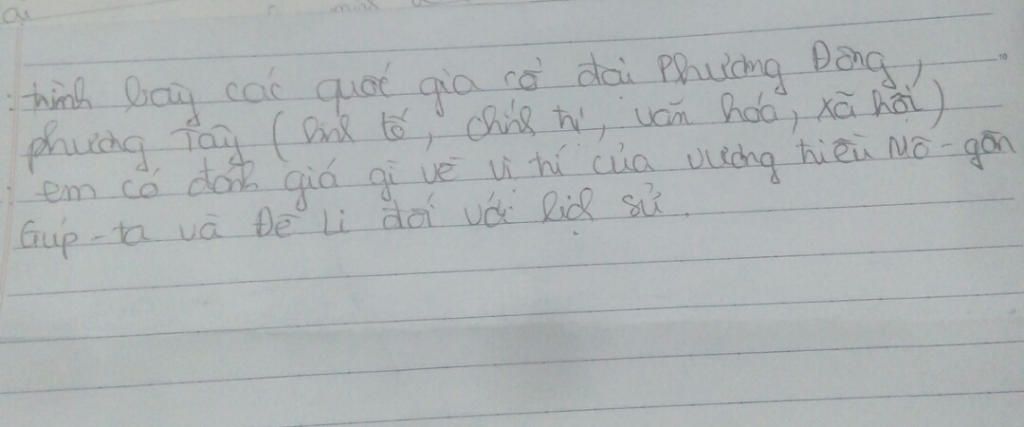 trình bày các quốc gia cổ đại Phương Đông,
phương Tây (kinh tế, chính trị, văn hóa, xã hội)
em có đánh giá gì về vị trí của vương triều Mô-gôn
Gúp-ta và Đê Li đối với lịch sử.